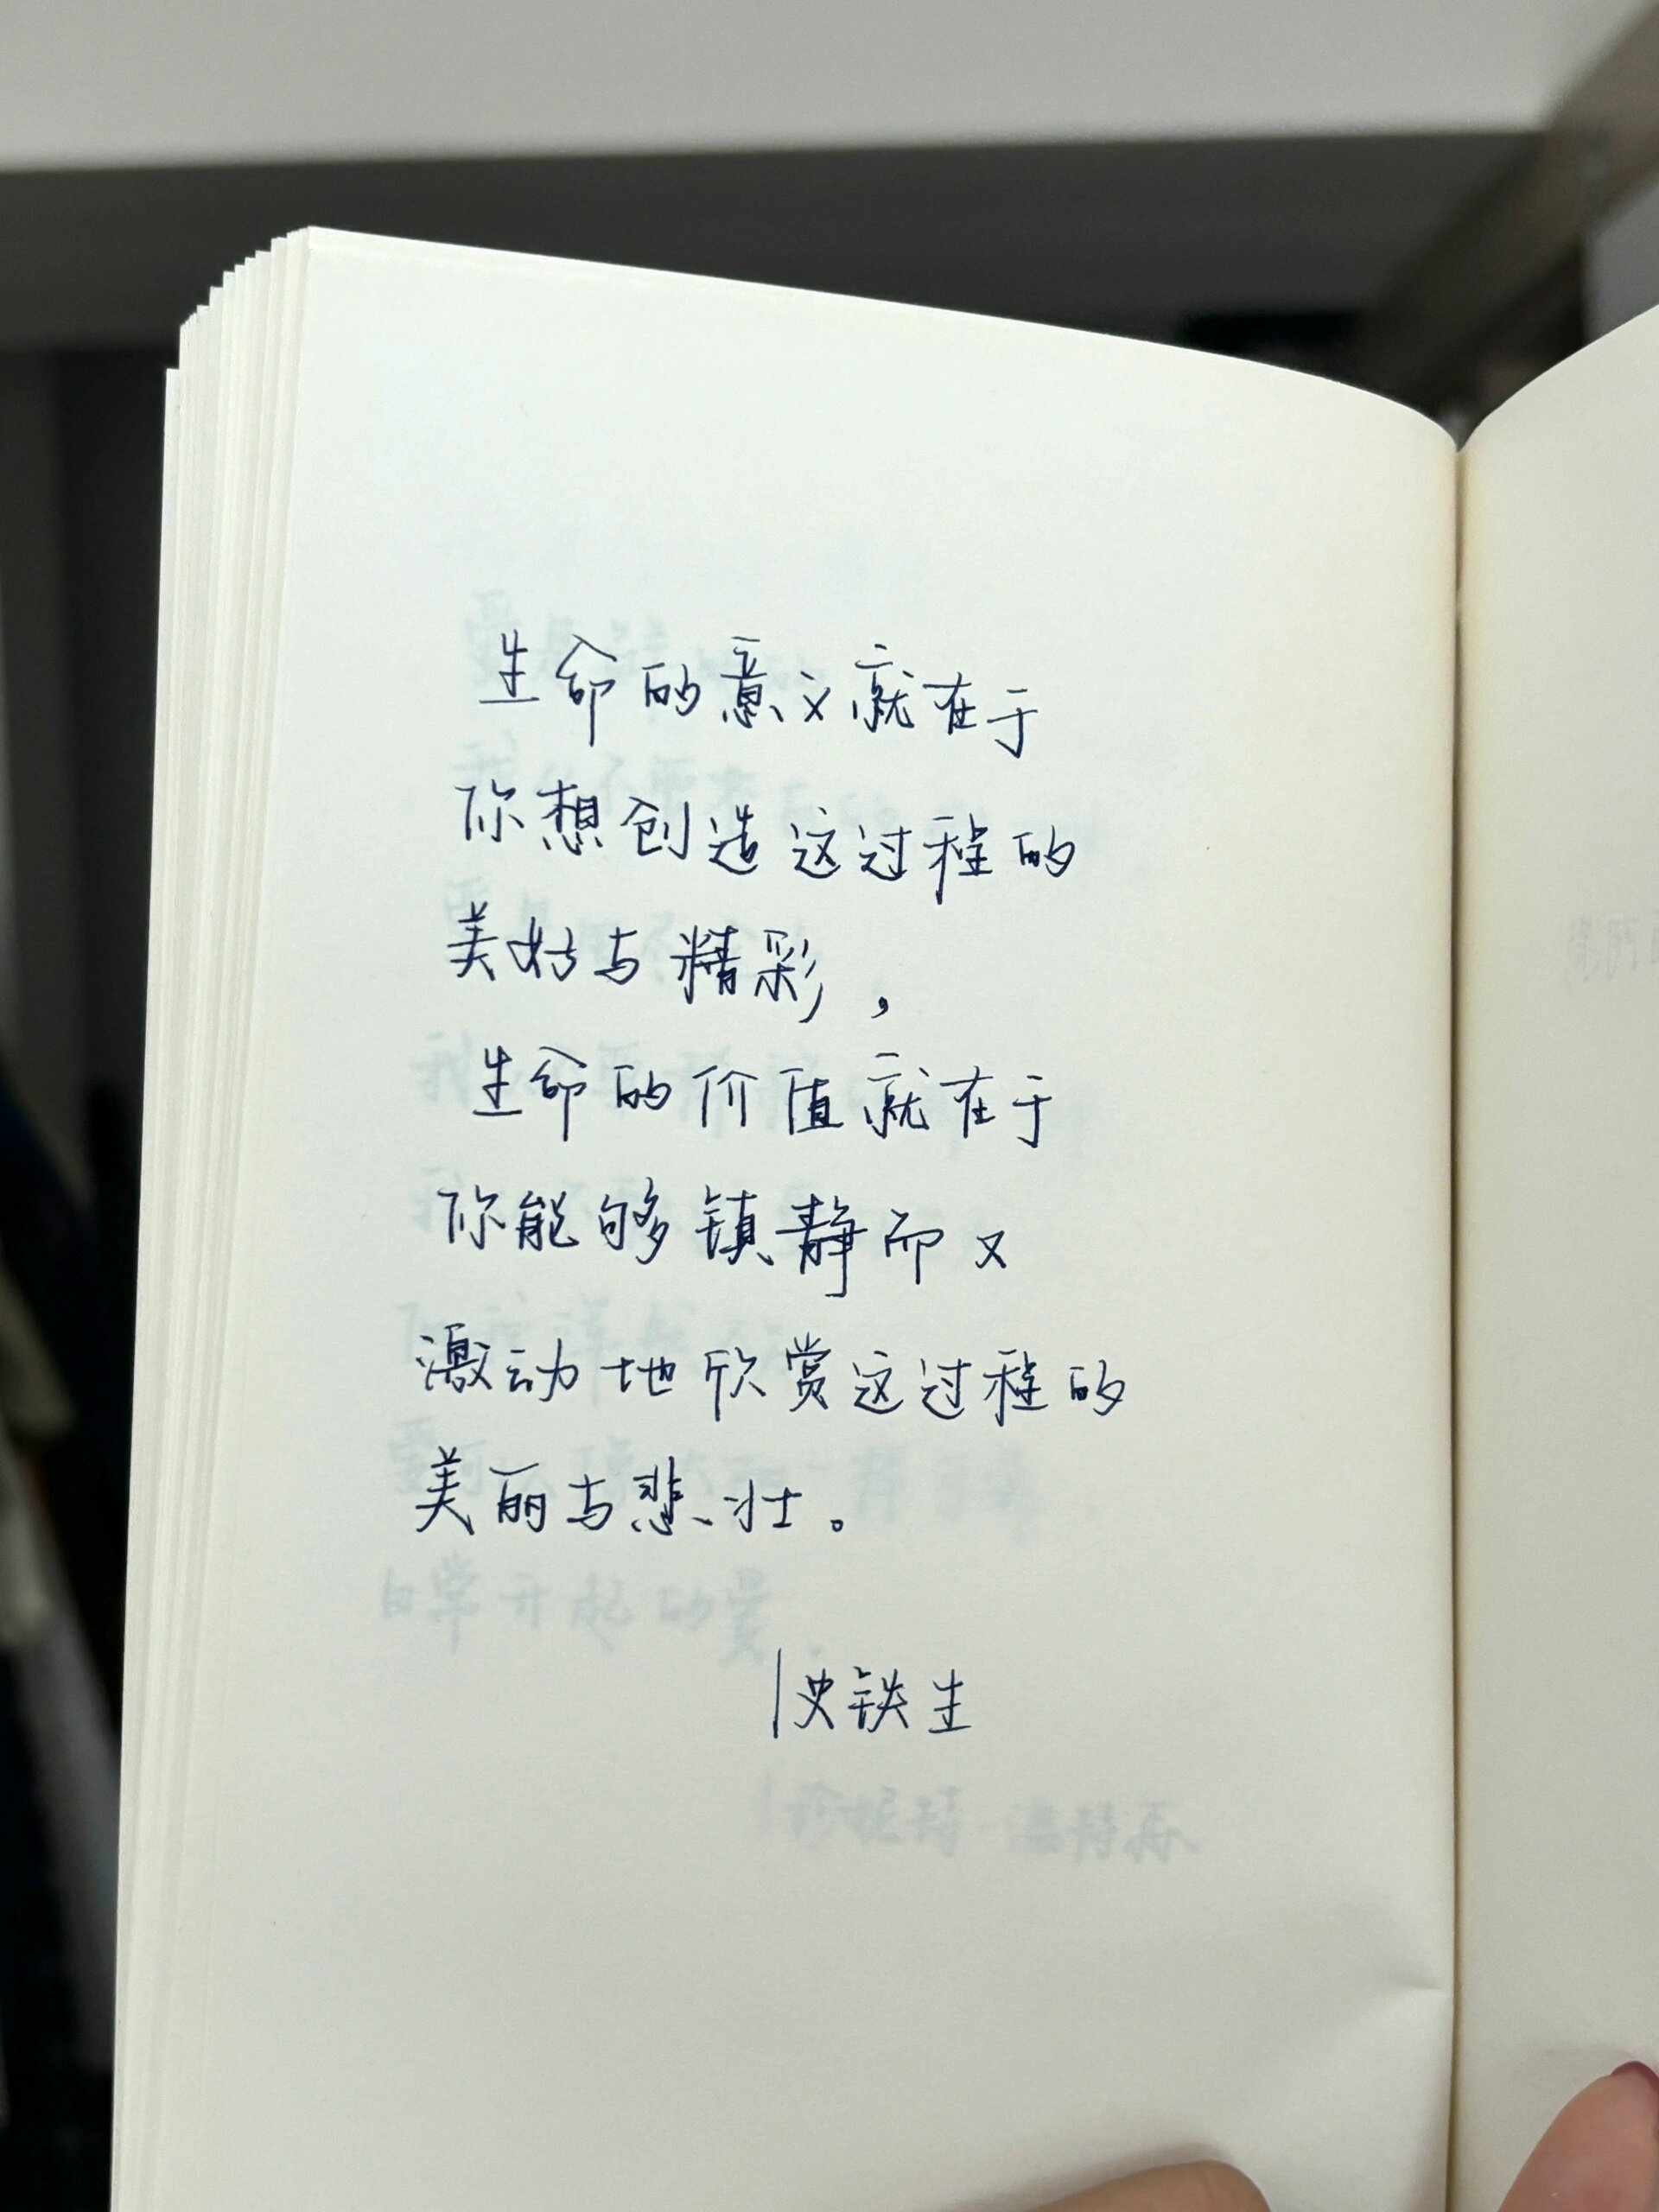 生命的意义就在于
你想创造这过程的
美好与精彩，
生命的价值就在于
你能够镇静而又
激动地欣赏这过程的
美丽与悲壮。
|史铁生